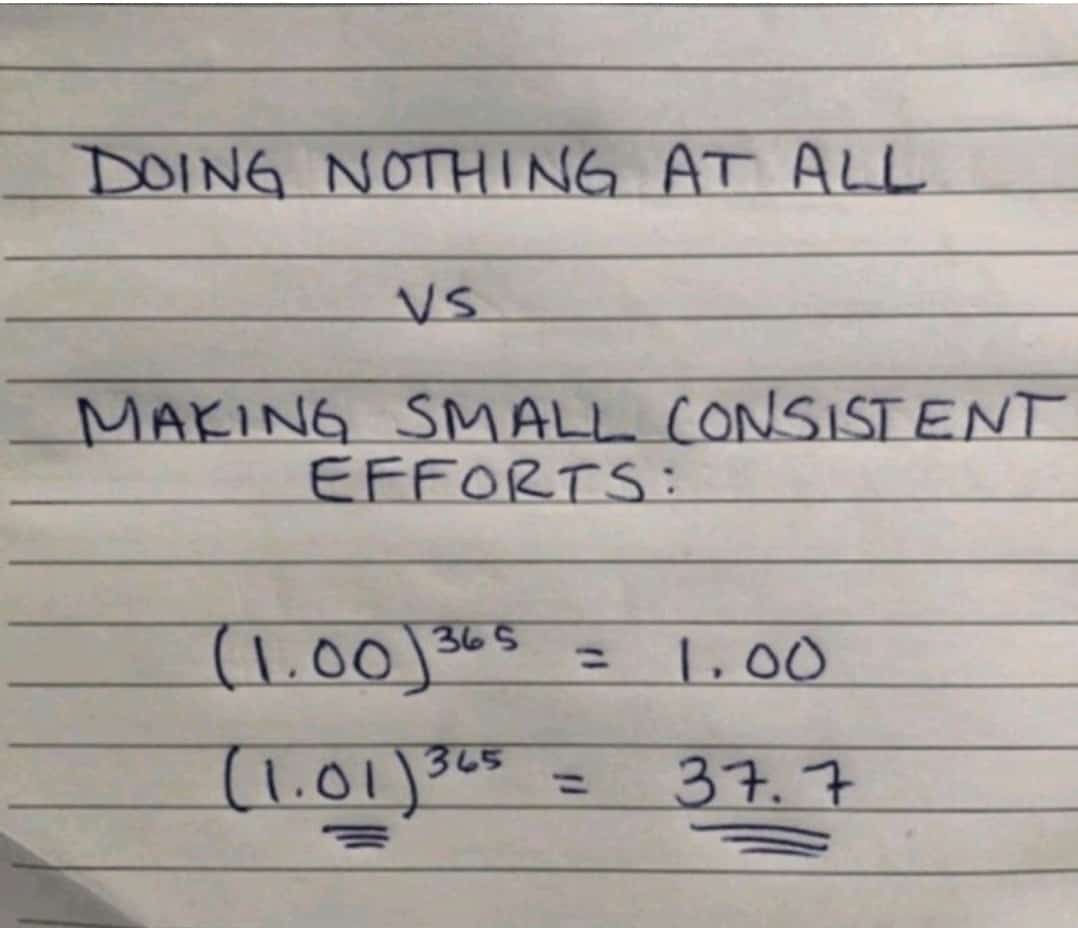 DOING NOTHING AT ALL
VS
MAKING SMALL CONSISTENT
EFFORTS:
(1.00)³⁶⁵ = 1.00
(1.01)³⁶⁵ = 37.7